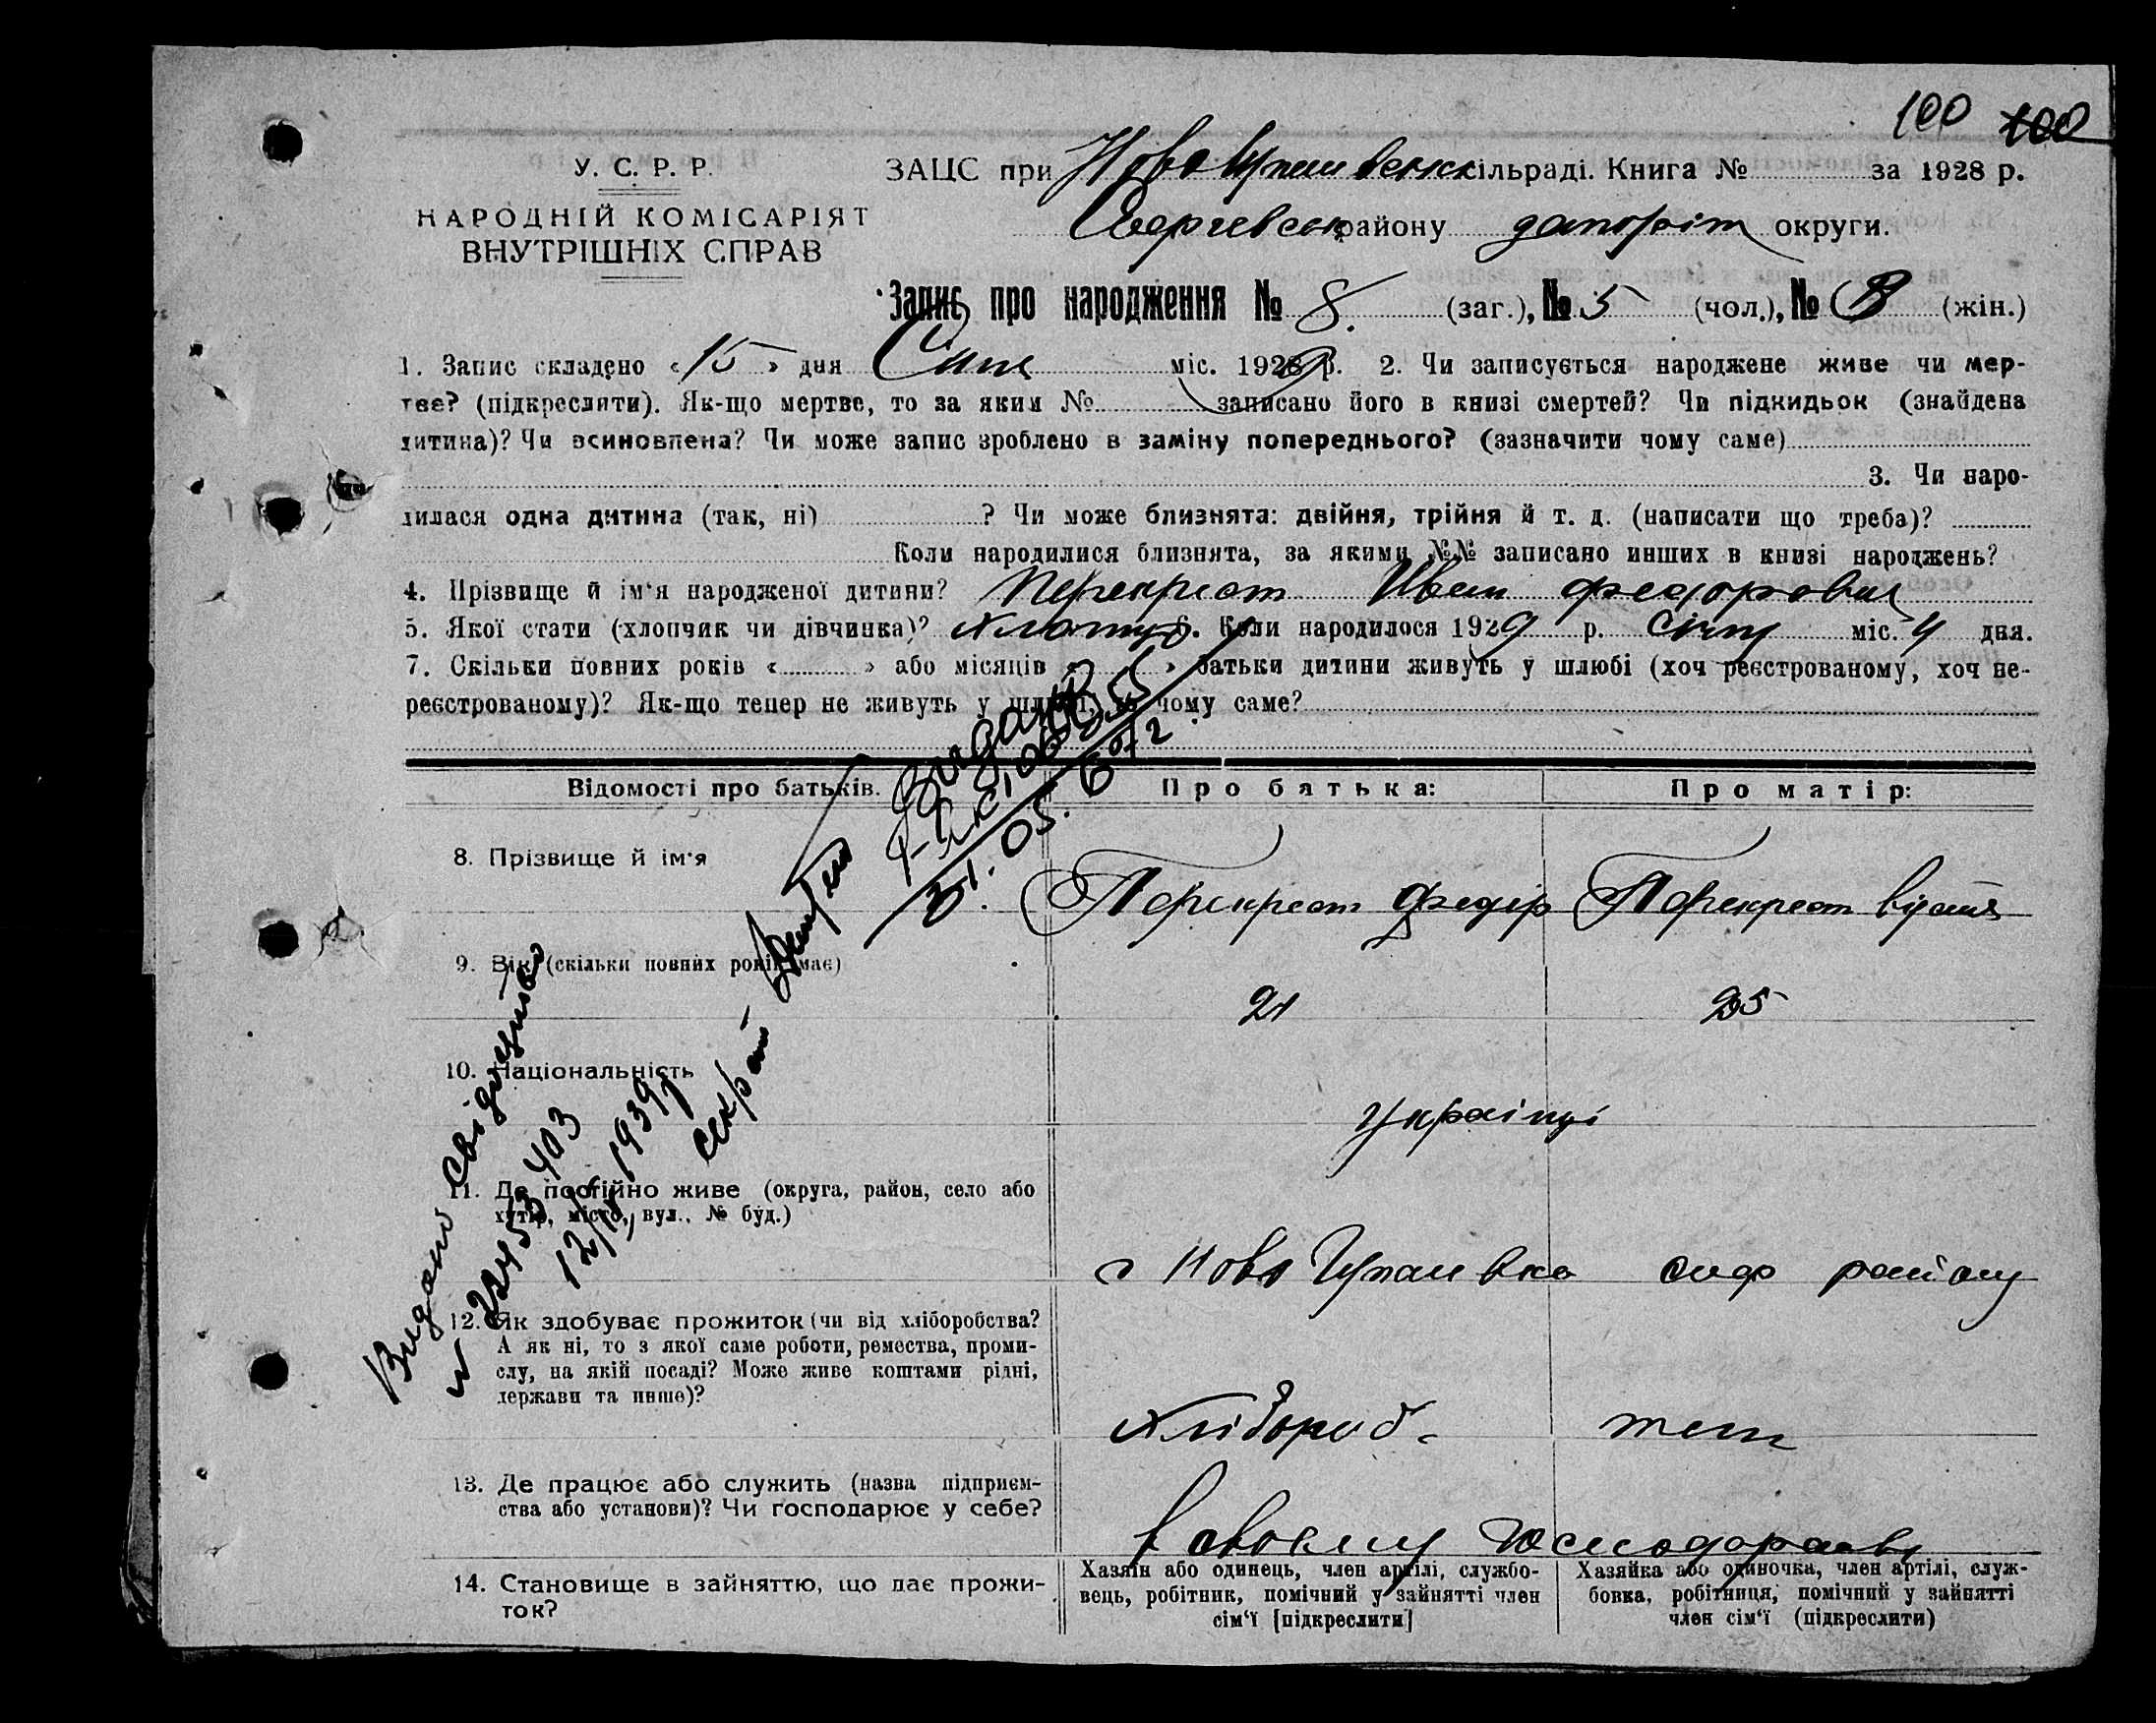 100 100
У. С. Р. Р.
НАРОДНІЙ КОМІСАРІЯТ
ВНУТРІШНІХ СПРАВ
ЗАЦС при сільраді. Книга № за 1928 р.
району запоріж округи.
Запис про народження № 8. (заг.), № 5 (чол.), № 3 (жін.)
1. Запис складено « 15 » дня Січня міс. 1929 р. 2. Чи записується народжене живе чи мер-
тве? (підкреслити). Як-що мертве, то за яким № записано його в книзі смертей? Чи підкидьок (знайдена
дитина)? Чи всиновлена? Чи може запис зроблено в заміну попереднього? (зазначити чому саме)
3. Чи наро-
дилася одна дитина (так, ні) ? Чи може близнята: двійня, трійня й т. д. (написати що треба)?
Коли народилися близнята, за якими №№ записано инших в книзі народжень?
4. Прізвище й ім'я народженої дитини? Перекрест Иван Федорович
5. Якої стати (хлопчик чи дівчинка)? хлопець 6. Коли народилося 1929 р. Січня міс. 4 дня.
7. Скільки повних років « » або місяців « » батьки дитини живуть у шлюбі (хоч реєстрованому, хоч не-
реєстрованому)? Як-що тепер не живуть у шлюбі, то чому саме?
Відомості про батьків.
Про батька:
Про матір:
8. Прізвище й ім'я
Перекрест Федір
Перекрест
9. Вік (скільки повних років має)
21
25
10. Національність
Українці
11. Де постійно живе (округа, район, село або
хутір, місто, вул., № буд.)
с Ново району
12. Як здобуває прожиток (чи від хліборобства?
А як ні, то з якої саме роботи, ремества, проми-
слу, на якій посаді? Може живе коштами рідні,
держави та инше)?
хлібороб.
теж
13. Де працює або служить (назва підприєм-
ства або установи)? Чи господарює у себе?
в своєму господарстві
14. Становище в зайняттю, що дає прожи-
ток?
Хазяїн або одинець, член артілі, службо-
вець, робітник, помічний у зайнятті член
сім'ї [підкреслити]
Хазяйка або одиночка, член артілі, служ-
бовка, робітниця, помічний у зайнятті
член сім'ї (підкреслити)
Видано свідоцтво
12/ 1939р
секрет
Видано